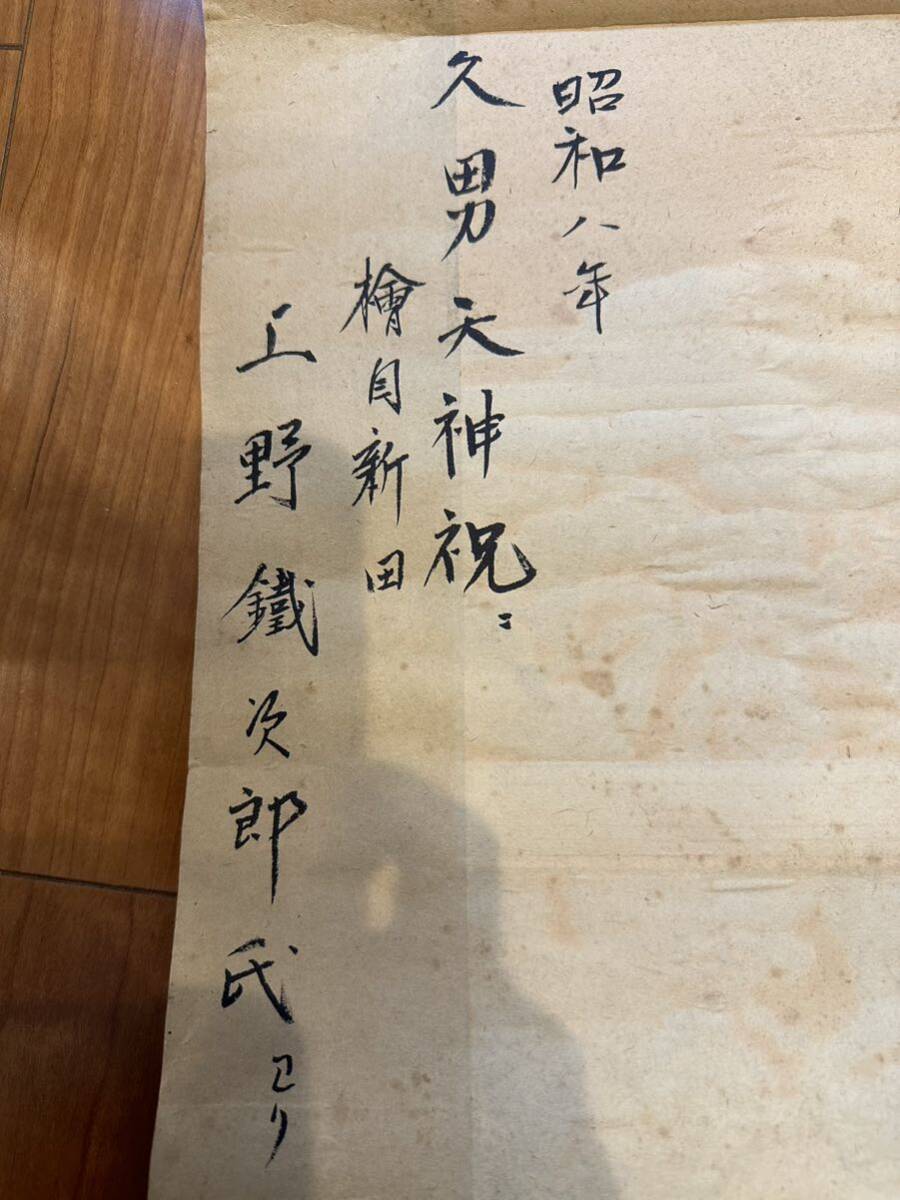 昭和八年
久男天神祝ニ
檜目新田
上野鐵次郎氏ヨリ